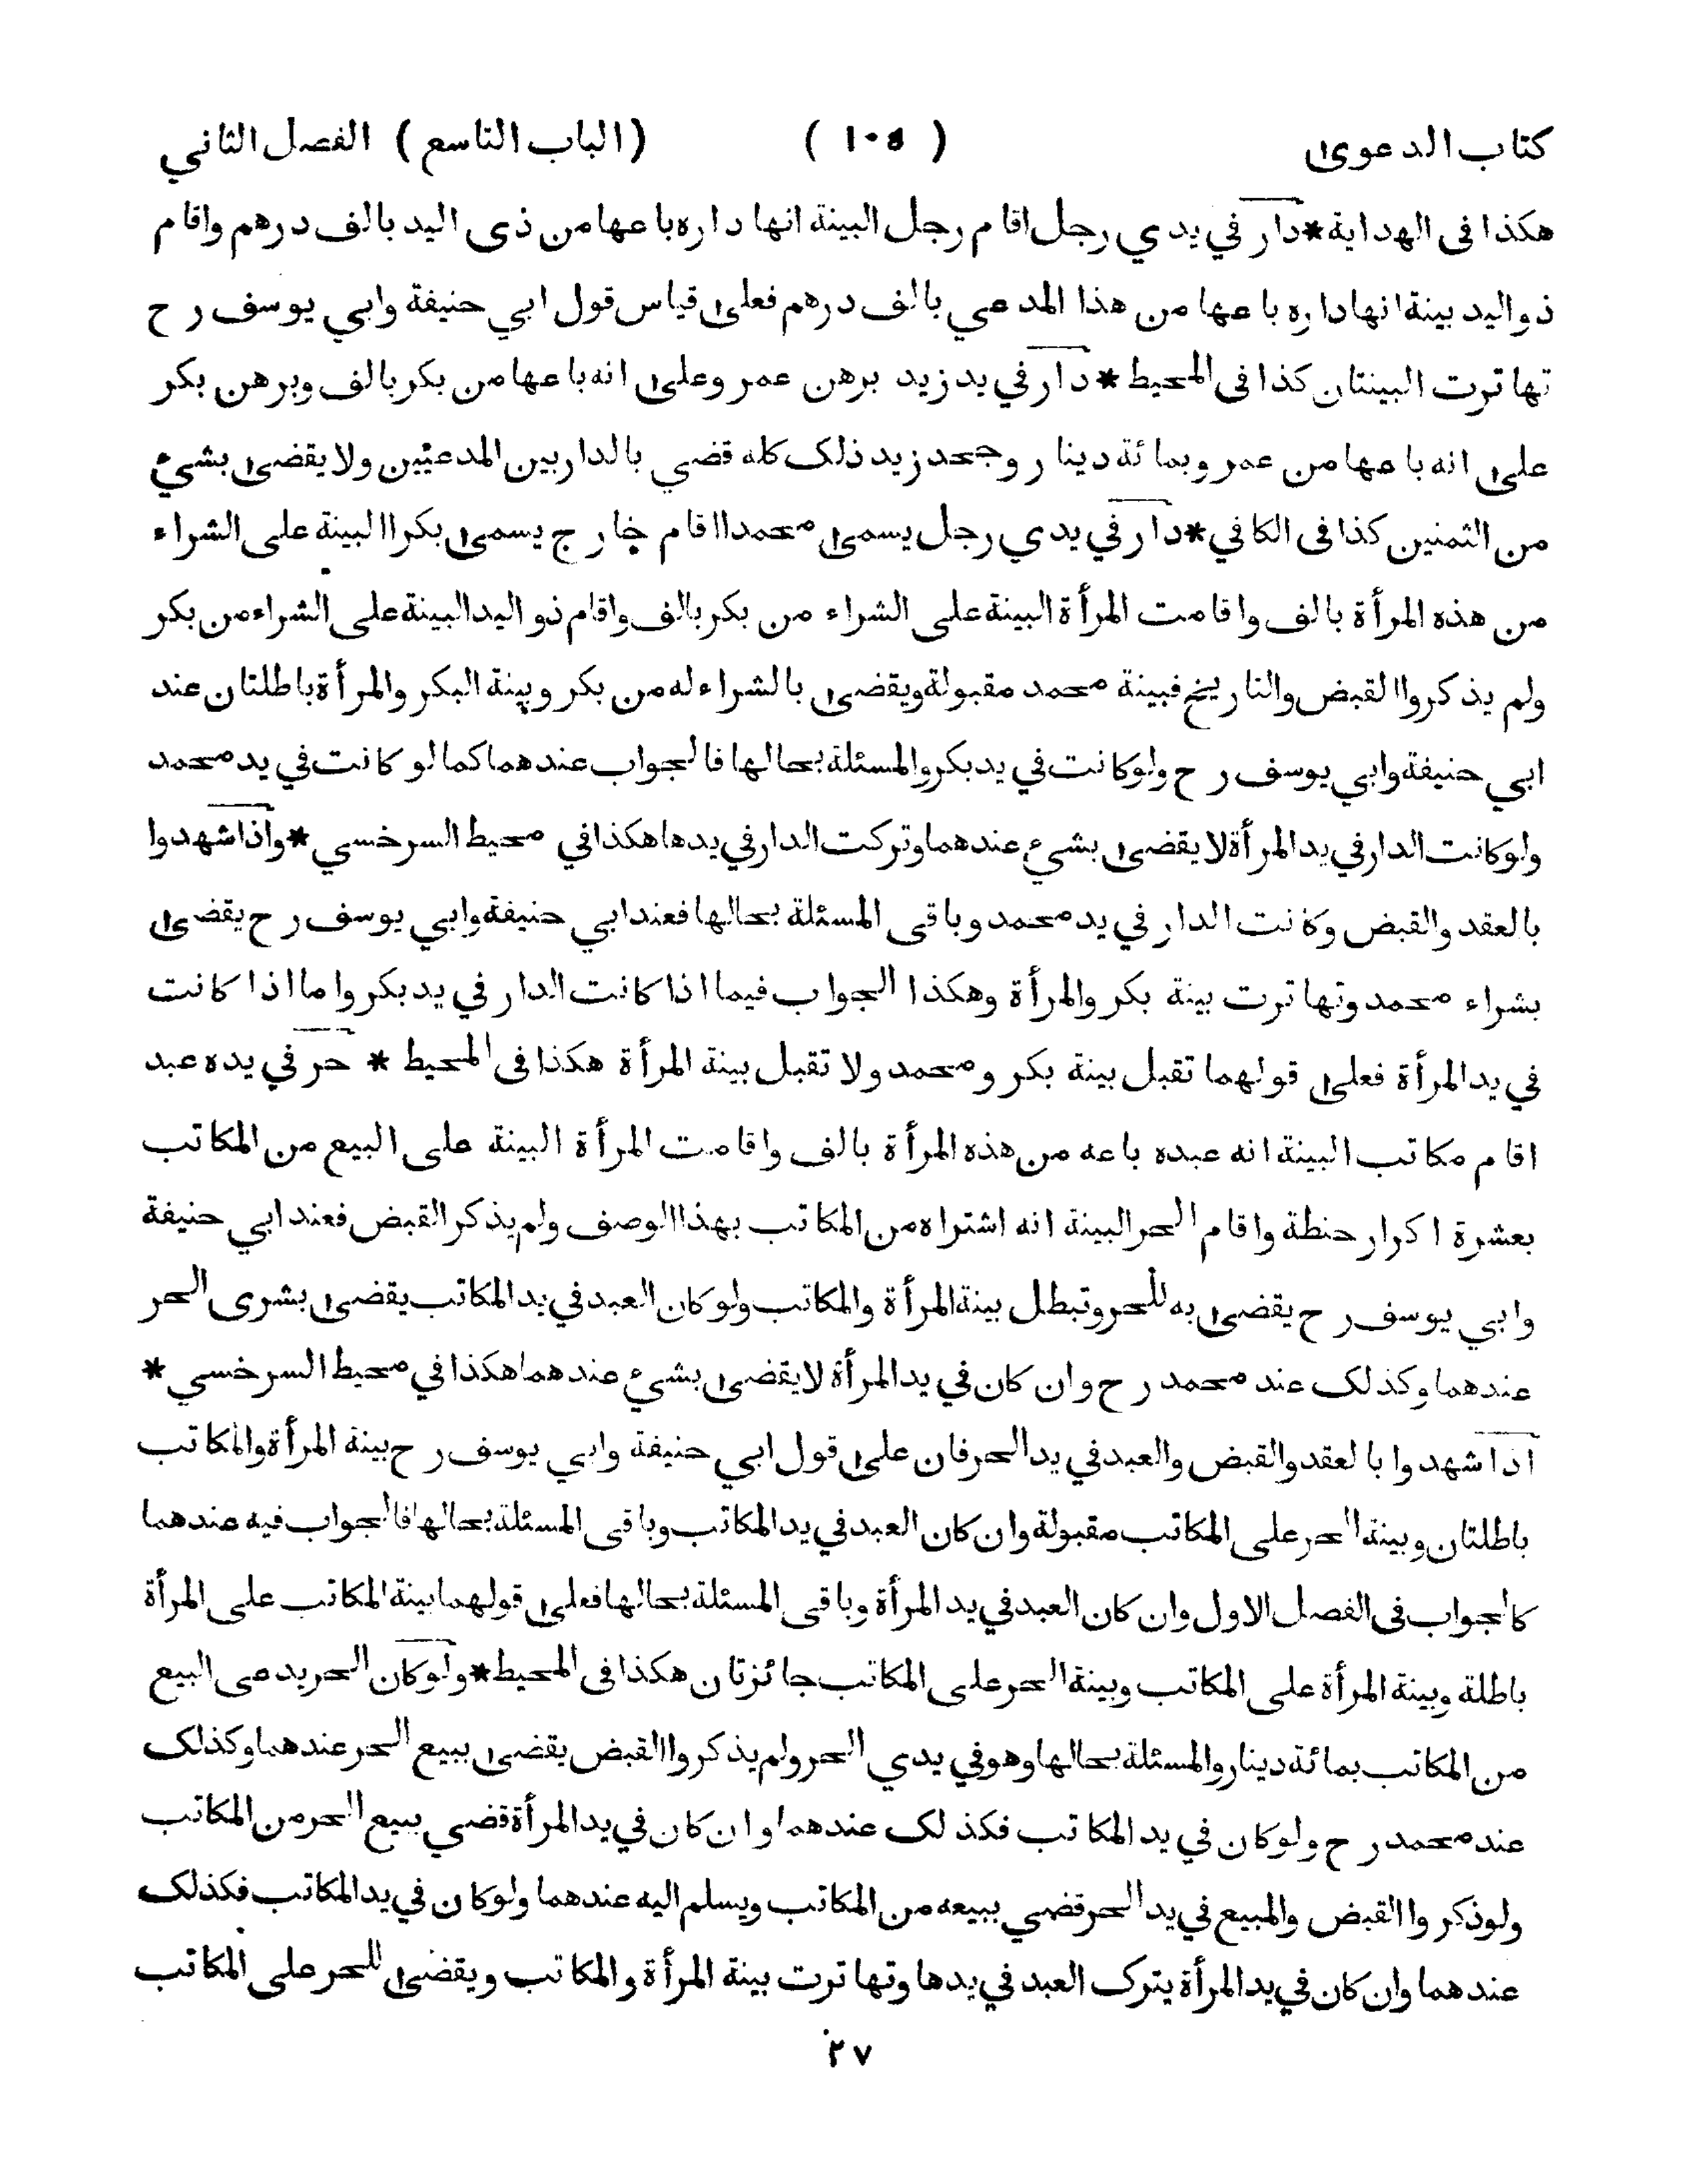 كتاب الدعوى ( ١٠٥ ) (الباب التاسع) الفصل الثاني
هكذا فى الهداية * دار في يدي رجل اقام رجل البينة انها داره باعها من ذى اليد بالف درهم واقام
ذو اليد بينة انها داره باعها من هذا المدعي بالف درهم فعلى قياس قول ابي حنيفة وابي يوسف رح
تهاترت البينتان كذا فى المحيط * دار في يد زيد برهن عمرو على انه باعها من بكر بالف وبرهن بكر
على انه باعها من عمرو بمائة دينار وجحد زيد ذلك كله قضي بالدار بين المدعيين ولا يقضى بشيء
من الثمنين كذا فى الكافي * دار في يدي رجل يسمى محمدا اقام خارج يسمى بكرا البينة على الشراء
من هذه المرأة بالف واقامت المرأة البينة على الشراء من بكر بالف واقام ذو اليد البينة على الشراء من بكر
ولم يذكروا القبض والتاريخ فبينة محمد مقبولة ويقضى بالشراء له من بكر وبينة البكر والمرأة باطلتان عند
ابي حنيفة وابي يوسف رح ولو كانت في يد بكر والمسئلة بحالها فالجواب عندهما كما لو كانت في يد محمد
ولو كانت الدار في يد المرأة لا يقضى بشيء عندهما وتركت الدار في يدها هكذا في محيط السرخسي * واذا شهدوا
بالعقد والقبض وكانت الدار في يد محمد وباقى المسئلة بحالها فعند ابي حنيفة وابي يوسف رح يقضى
بشراء محمد وتهاترت بينة بكر والمرأة وهكذا الجواب فيما اذا كانت الدار في يد بكر واما اذا كانت
في يد المرأة فعلى قولهما تقبل بينة بكر ومحمد ولا تقبل بينة المرأة هكذا فى المحيط * حر في يده عبد
اقام مكاتب البينة انه عبده باعه من هذه المرأة بالف واقامت المرأة البينة على البيع من المكاتب
بعشرة اكرار حنطة واقام الحر البينة انه اشتراه من المكاتب بهذا الوصف ولم يذكر القبض فعند ابي حنيفة
وابي يوسف رح يقضى به للحر وتبطل بينة المرأة والمكاتب ولو كان العبد في يد المكاتب يقضى بشرى الحر
عندهما وكذلك عند محمد رح وان كان في يد المرأة لا يقضى بشيء عندهما هكذا في محيط السرخسي *
اذا شهدوا بالعقد والقبض والعبد في يد الحر فان على قول ابي حنيفة وابي يوسف رح بينة المرأة والمكاتب
باطلتان وبينة الحر على المكاتب مقبولة وان كان العبد في يد المكاتب وباقى المسئلة بحالها فالجواب فيه عندهما
كالجواب فى الفصل الاول وان كان العبد في يد المرأة وباقى المسئلة بحالها فعلى قولهما بينة المكاتب على المرأة
باطلة وبينة المرأة على المكاتب وبينة الحر على المكاتب جائزتان هكذا فى المحيط * ولو كان الحر يدعى البيع
من المكاتب بمائة دينار والمسئلة بحالها وهو في يدي الحر ولم يذكروا القبض يقضى ببيع الحر عندهما وكذلك
عند محمد رح ولو كان في يد المكاتب فكذلك عندهما وان كان في يد المرأة قضي ببيع الحر من المكاتب
ولو ذكروا القبض والمبيع في يد الحر قضي ببيعه من المكاتب ويسلم اليه عندهما ولو كان في يد المكاتب فكذلك
عندهما وان كان في يد المرأة يترك العبد في يدها وتهاترت بينة المرأة والمكاتب ويقضى للحر على المكاتب
٢٧